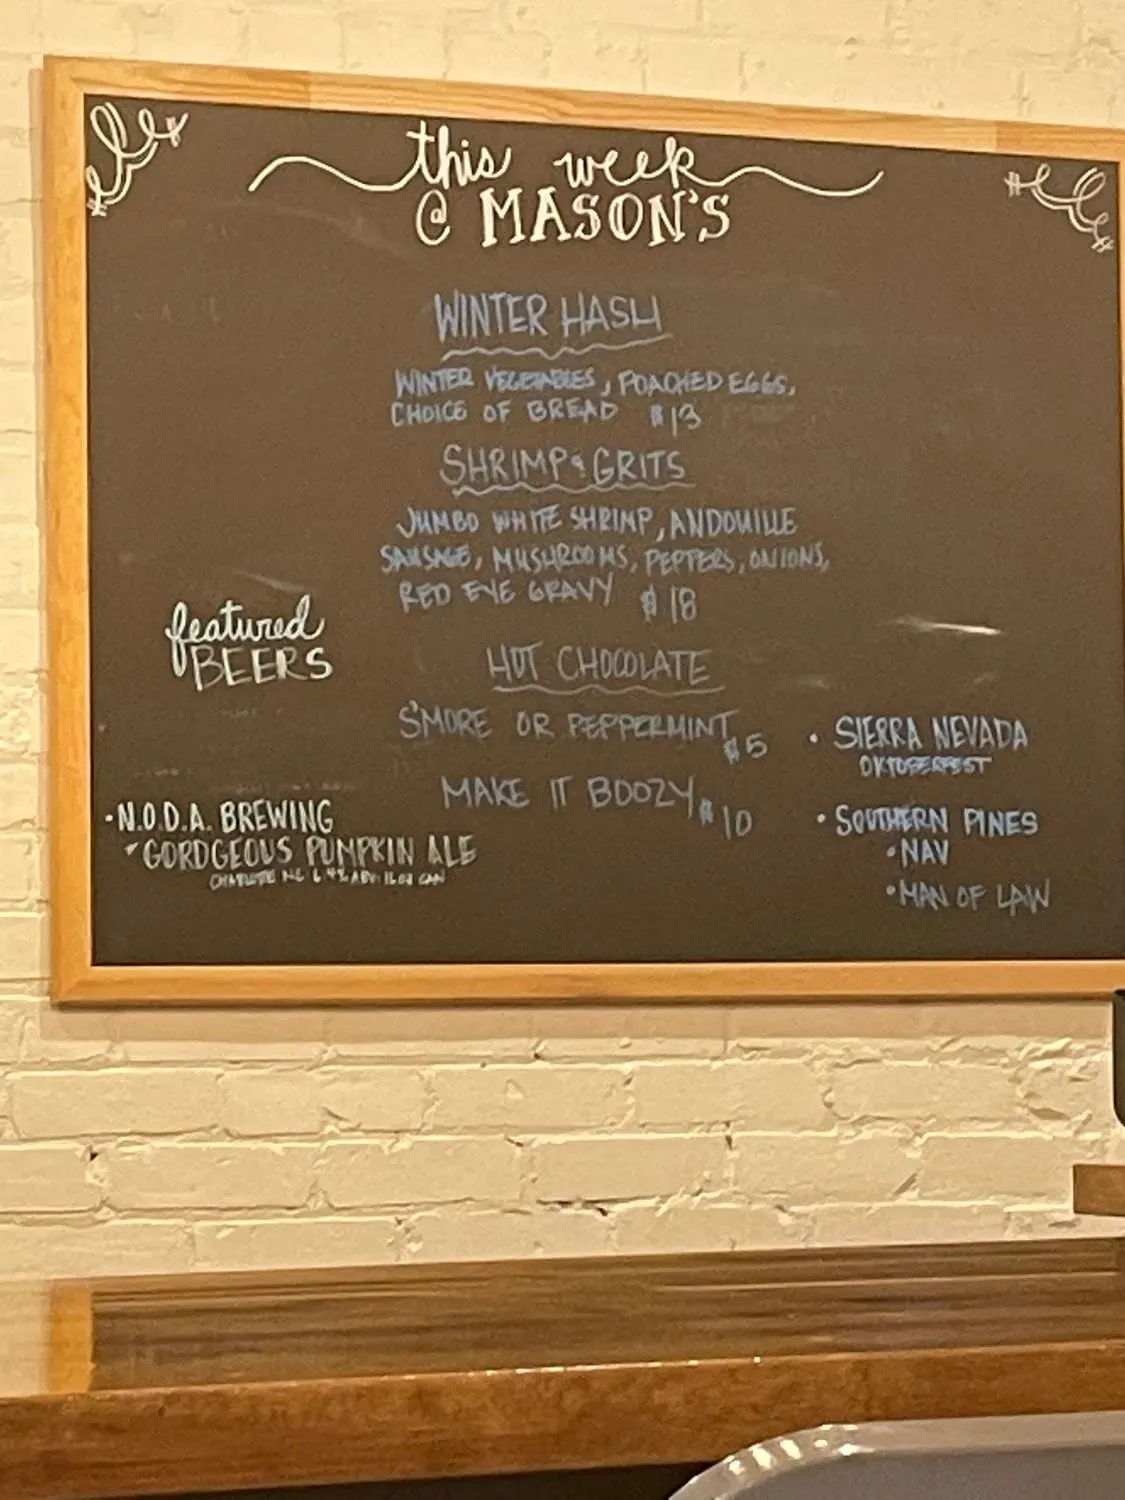 this week
@ MASON'S
WINTER HASH
WINTER VEGETABLES, POACHED EGGS,
CHOICE OF BREAD $13
SHRIMP & GRITS
JUMBO WHITE SHRIMP, ANDOUILLE
SAUSAGE, MUSHROOMS, PEPPERS, ONIONS,
RED EYE GRAVY $18
HOT CHOCOLATE
S'MORE OR PEPPERMINT $5
MAKE IT BOOZY $10
featured
BEERS
• N.O.D.A. BREWING
GORDGEOUS PUMPKIN ALE
CHARLOTTE NC 6.9% ABV 16oz CAN
• SIERRA NEVADA
OKTOBERFEST
• SOUTHERN PINES
• NAV
• MAN OF LAW